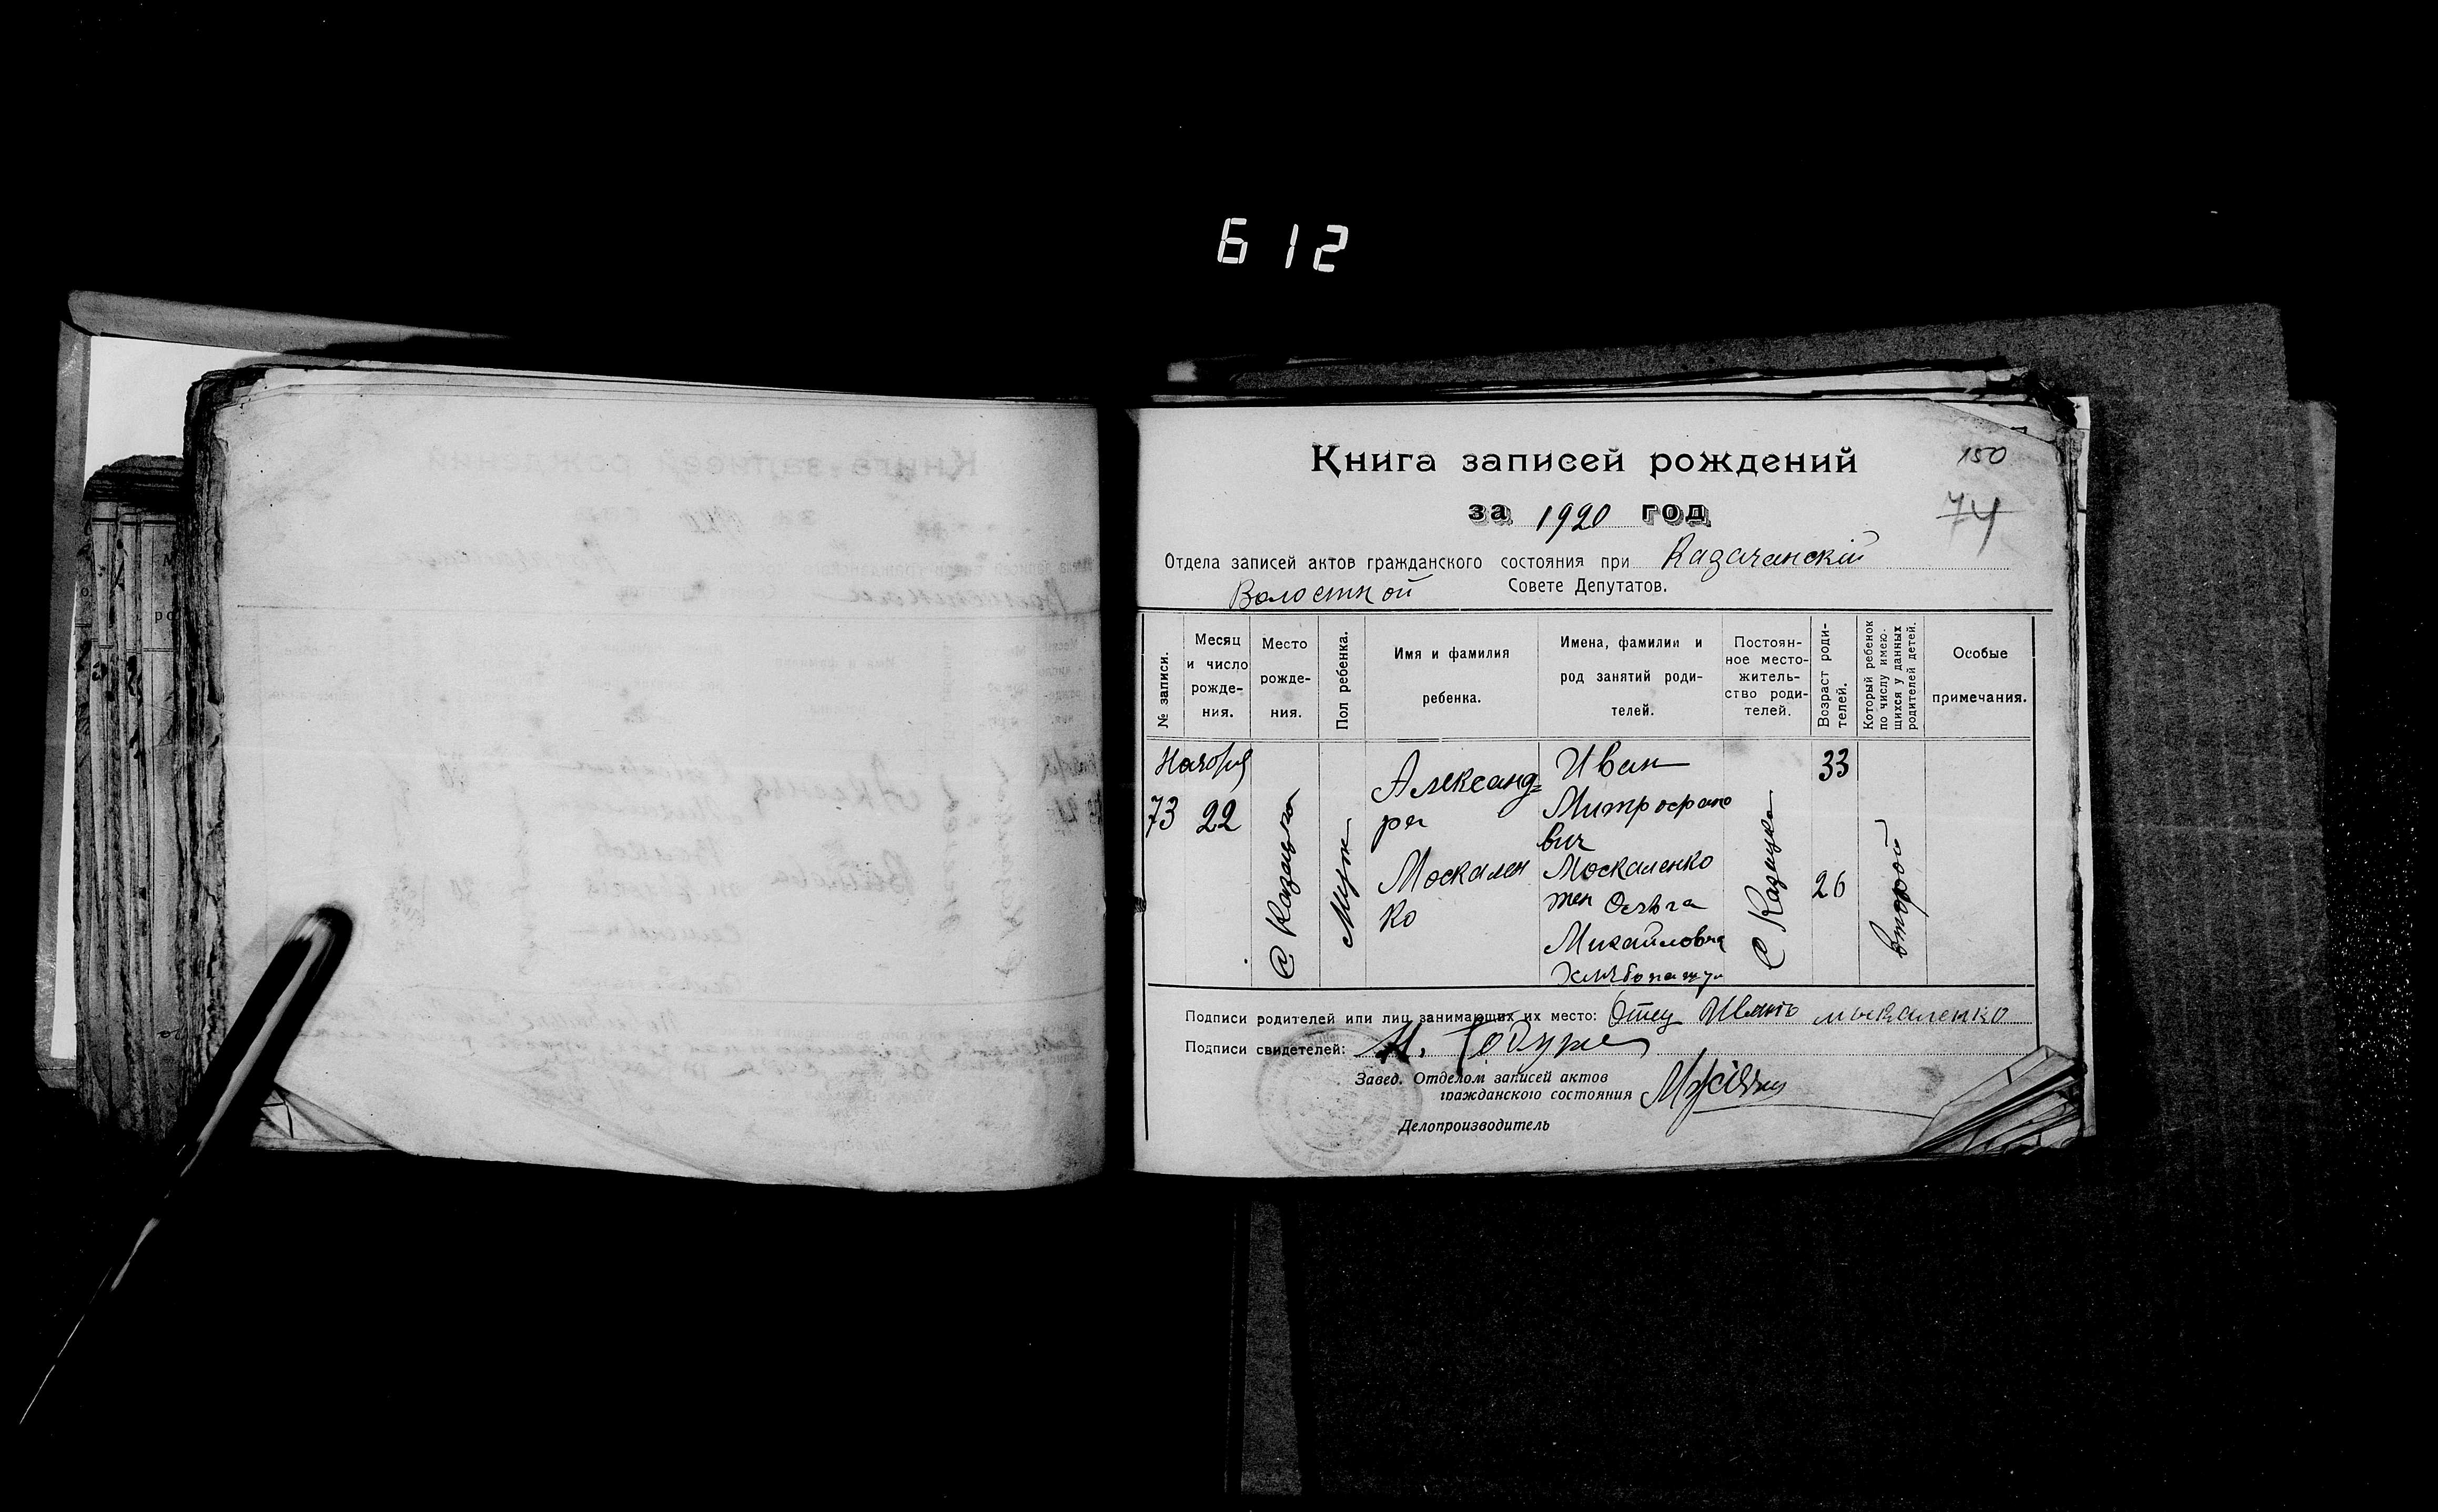 612
Книга записей рождений
150
за 1920 год
74
Отдела записей актов гражданского состояния при Казачанскій
Волостной Совете Депутатов.
№ записи.
Месяц и число рожде-ния.
Место рожде-ния.
Пол ребенка.
Имя и фамилия ребенка.
Имена, фамилии и род занятий роди-телей.
Постоян-ное место-житель-ство роди-телей.
Возраст роди-телей.
Который ребенок по числу имею-щихся у данных родителей детей.
Особые примечания.
73
22
С Казацко
Муж
Александ=
ра
Москален
ко
Иван
Митрофано
вич
Москаленко
жен Ольга
Михайловна
С Казацко
33
26
второй
Подписи родителей или лиц занимающих их место: Отец Иванъ москаленко
Подписи свидетелей:
Завед. Отделом записей актов
гражданского состояния
Делопроизводитель